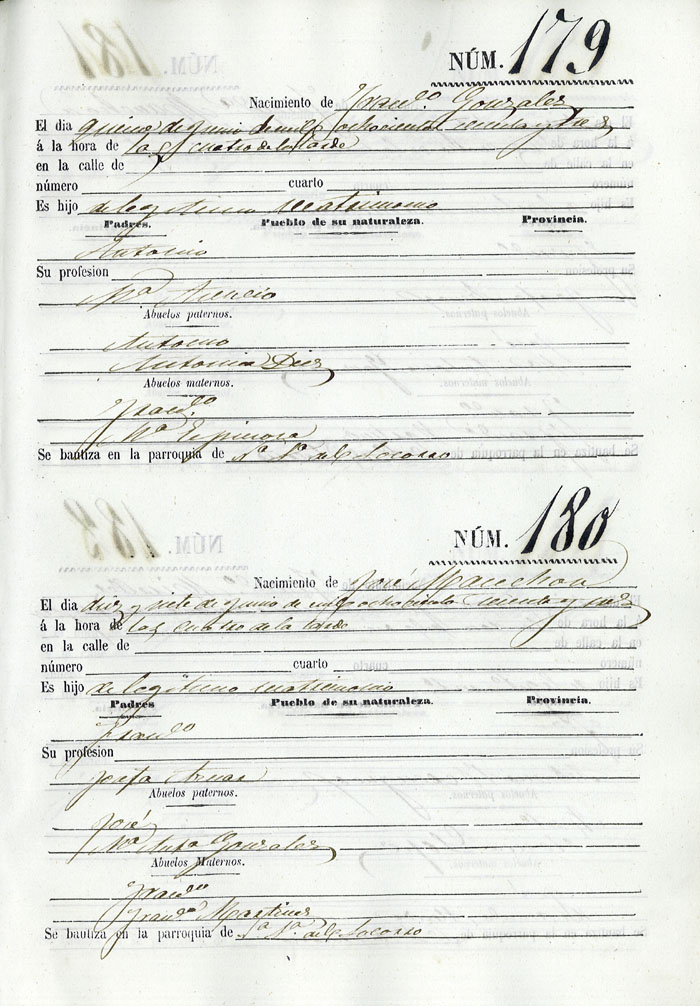 NÚM. 179
Nacimiento de Franco. Gonzales
El dia quince de junio de mil ochocientos
á la hora de las cuatro de la tarde
en la calle de
número cuarto
Es hijo de legitimo matrimonio
Padres. Pueblo de su naturaleza. Provincia.
Antonio
Su profesion
Ma Asencio
Abuelos paternos.
Antonio
Antonia Dies
Abuelos maternos.
Franco
Ma Espinosa
Se bautiza en la parroquia de Na Sa del Socorro
NÚM. 180
Nacimiento de José Manchon
El dia diez y siete de junio de mil ochociento
á la hora de las cuatro de la tarde
en la calle de
número cuarto
Es hijo de legitimo matrimonio
Padres Pueblo de su naturaleza. Provincia.
Franco
Su profesion
Josefa
Abuelos paternos.
José
Ma Anta Gonzales
Abuelos Maternos.
Franco
Franca Martines
Se bautiza en la parroquia de Na Sa del Socorro